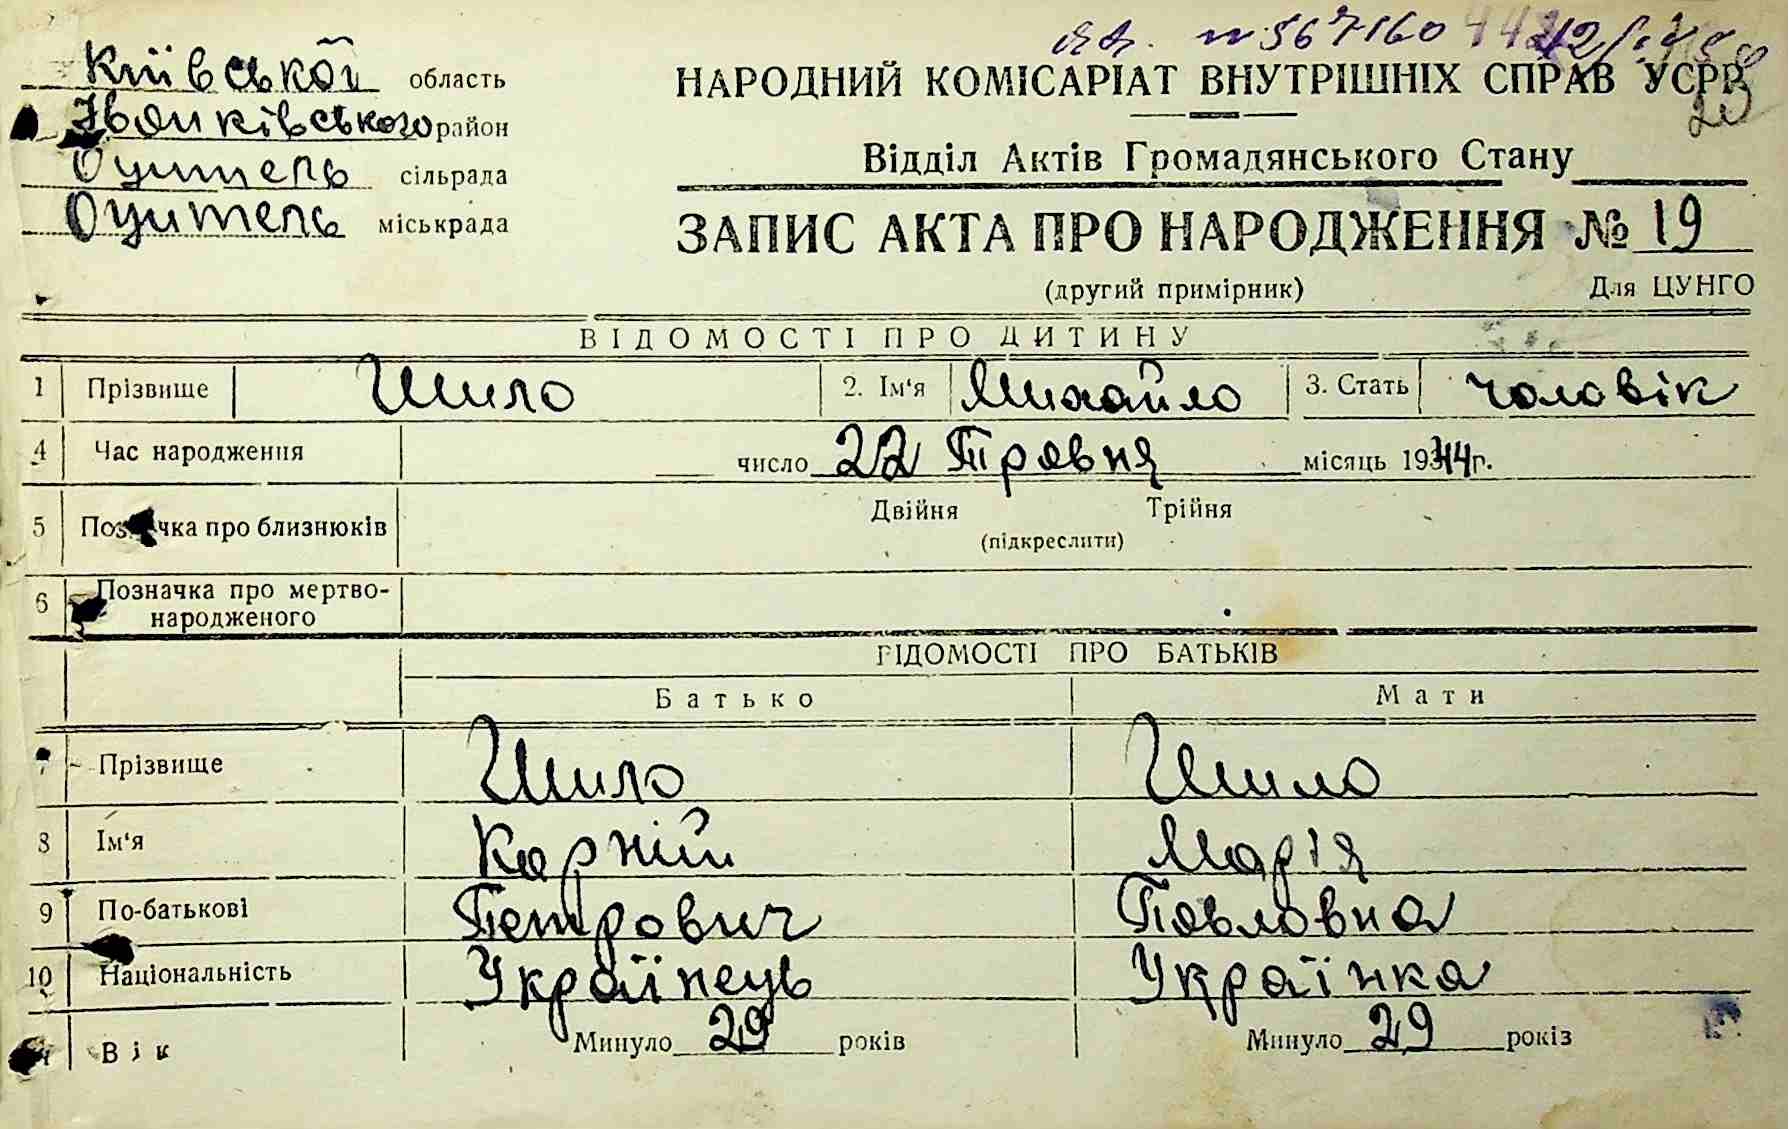 № 567160
Київської область
НАРОДНИЙ КОМІСАРІАТ ВНУТРІШНІХ СПРАВ УСРР
23
Іванківського район
Відділ Актів Громадянського Стану
Оцитель сільрада
Оцитель міськрада
ЗАПИС АКТА ПРО НАРОДЖЕННЯ № 19
(другий примірник) Для ЦУНГО
ВІДОМОСТІ ПРО ДИТИНУ
1 Прізвище Шило 2. Ім'я Михайло 3. Стать чоловік
4 Час народження число 22 Травня місяць 1944г.
5 Позначка про близнюків Двійня Трійня
(підкреслити)
6 Позначка про мертво-
народженого
ВІДОМОСТІ ПРО БАТЬКІВ
Батько Мати
7 Прізвище Шило Шило
8 Ім'я Корній Марія
9 По-батькові Петрович Павловна
10 Національність Українець Українка
11 Вік Минуло 29 років Минуло 29 років